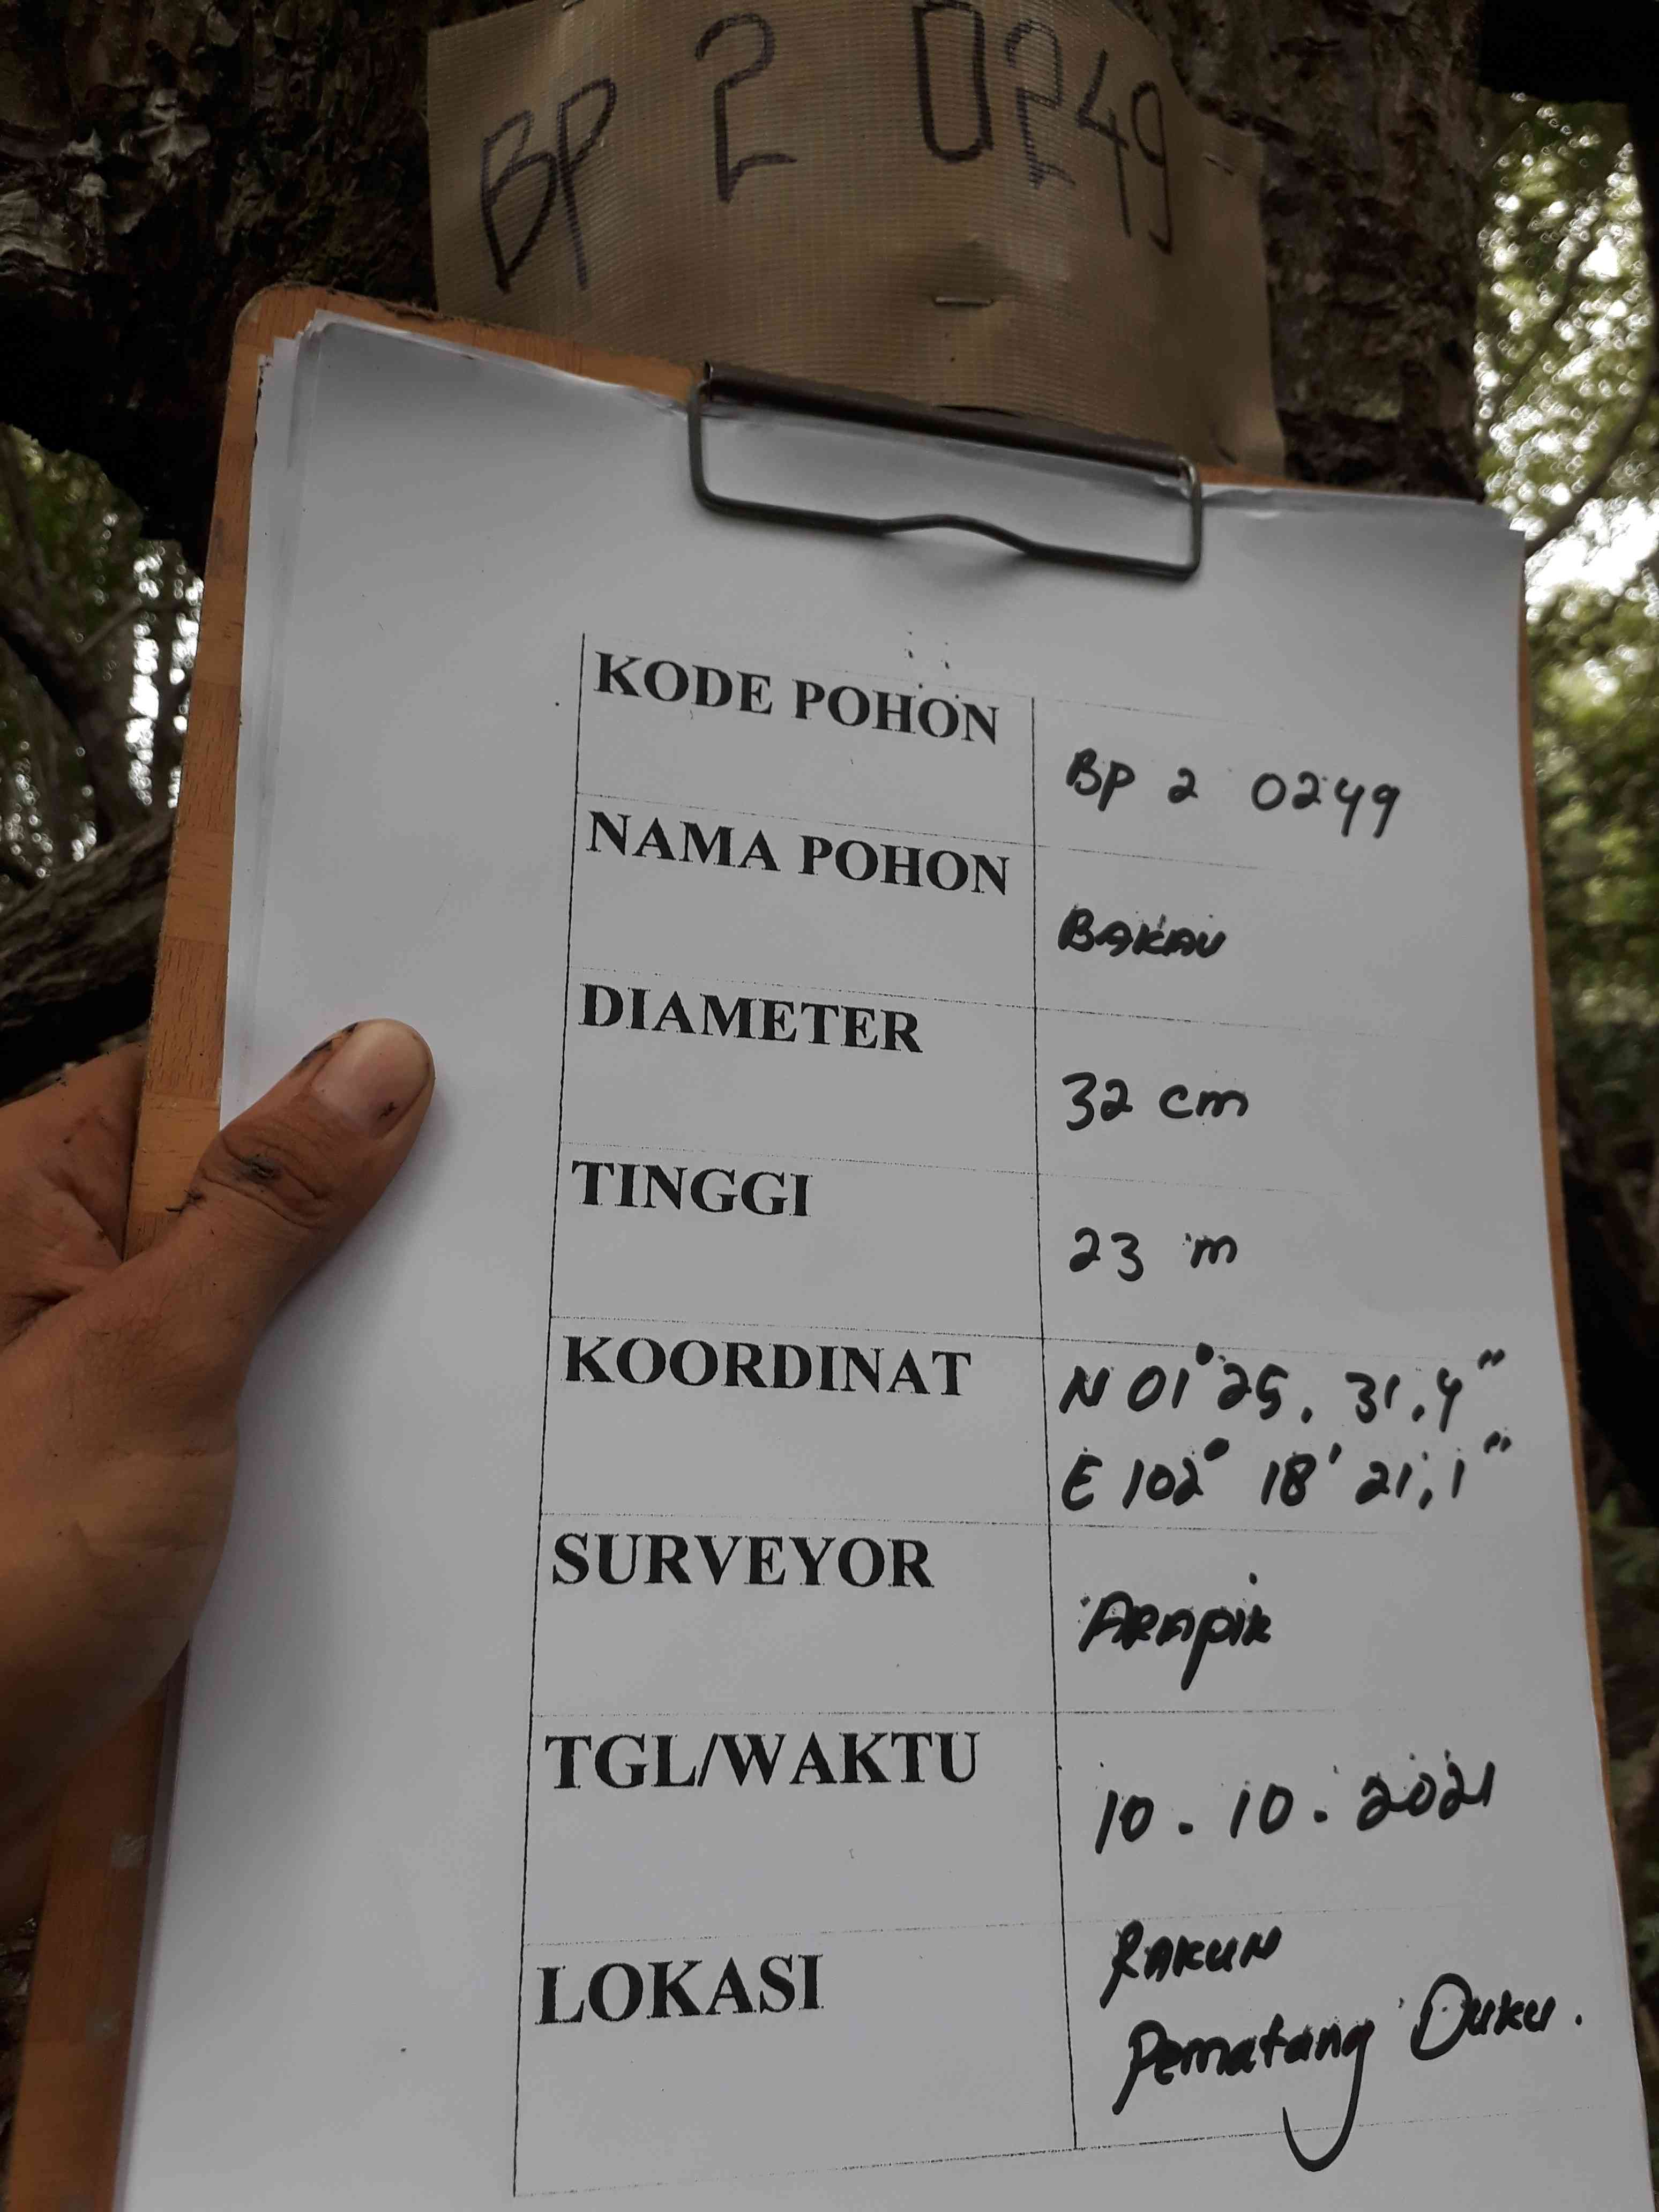 BP 2 0249
KODE POHON
BP 2 0249
NAMA POHON
BAKAU
DIAMETER
32 cm
TINGGI
23 m
KOORDINAT
N 01° 25. 31.4"
E 102° 18' 21,1"
SURVEYOR
ARAPIK
TGL/WAKTU
10.10.2021
LOKASI
RAKUN
Pematang Duku.